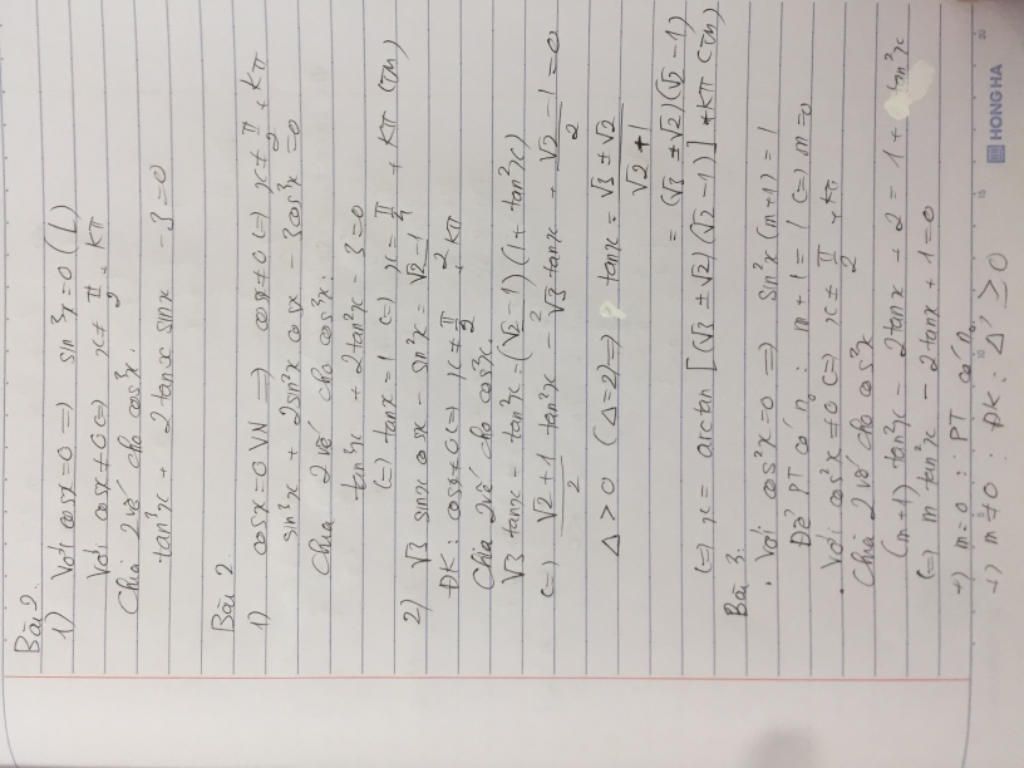 Bài 2.
1) Với cosx=0 => sin³x=0 (L)
Với cosx≠0 <=> x≠ π/2 + kπ
Chia 2 vế cho cos³x.
tan³x + 2tanx sinx - 3=0
Bài 2.
1) cosx=0 VN => cosx≠0 <=> x≠ π/2 + kπ
sin³x + 2sin²x cosx - 3cos³x=0
Chia 2 vế cho cos³x:
tan³x + 2tan²x - 3=0
<=> tanx=1 <=> x= π/4 + kπ (TM)
2) √3 sinx cosx - sin²x = (√2-1)/2
ĐK: cosx≠0 <=> x≠ π/2 + kπ
Chia 2 vế cho cos²x.
√3 tanx - tan²x = (√2-1)/2 (1+tan²x)
<=> (√2+1)/2 tan²x - √3 tanx + (√2-1)/2 =0
Δ>0 (Δ=2) => tanx = (√3±√2)/(√2+1)
= (√3±√2)(√2-1)
<=> x= arctan[(√3±√2)(√2-1)]+kπ (TM)
Bài 3.
. Với cos²x=0 => sin²x(m+1)=1
Để PT có n₀ : m+1=1 <=> m=0
. Với cos²x≠0 <=> x≠ π/2 + kπ
Chia 2 vế cho cos²x
(m+1)tan²x - 2tanx + 2 = 1+ tan²x
<=> m tan²x - 2tanx + 1=0
+) m=0 : PT có n₀
+) m≠0 : ĐK: Δ' ≥ 0
HONG HA